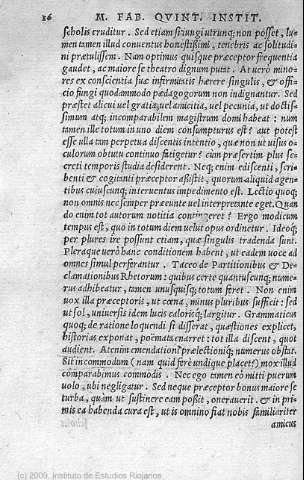 16 M. FAB. QVINT. INSTIT.
scholis eruditur. Sed etiam si iungi utrunq; non posset, lu-
men tamen illud conuentus honestissimi, tenebris ac solitudi
ni prætulissem. Nam optimus quisque præceptor frequentia
gaudet, ac maiore se theatro dignum putat. At uero mino-
res ex conscientia suæ infirmitatis hærere singulis, & offi
cio fungi quodammodo pædagogorum non indignantur. Sed
præstet alicui uel gratia, uel amicitia, uel pecunia, ut doctis-
simum atq; incomparabilem magistrum domi habeat: num
tamen ille totum in uno diem consumpturus est? aut potest
esse ulla tam perpetua discentis intentio, quæ non ut uisus o-
culorum obtutu continuo fatigetur? cum præsertim plus se-
creti temporis studia desiderent. Neq; enim ediscenti, scri-
benti & cogitanti præceptor assistit, quorum aliquid agen-
tibus cuiuscunq; interuentus impedimento est. Lectio quoq;
non omnis nec semper præeunte uel interprete eget. Quan
do enim tot autorum notitia contingeret? Ergo modicum
tempus est, quo in totum diem uelut opus ordinetur. Ideoq;
per plures ire possunt etiam, quæ singulis tradenda sunt.
Pleraque uero hanc conditionem habent, ut eadem uoce ad
omnes simul perferantur. Taceo de Partitionibus & De
clamationibus Rhetorum: quibus certe quantuscunq; nume-
rus adhibeatur, tamen unusquisq; totum feret. Non enim
uox illa præceptoris, ut cœna, minus pluribus sufficit: sed
ut sol, uniuersis idem lucis calorisq; largitur. Grammaticus
quoq; de ratione loquendi si disserat, quæstiones explicet,
historias exponat, poëmata enarret: tot illa discent, quot
audient. At enim emendationi prælectioniq; numerus obstat.
Sit incommodum (nam quid ferè undique placet?) mox illud
comparabimus commodis. Nec ego tamen eò mitti puerum
uolo, ubi negligatur. Sed neque præceptor bonus maiore se
turba, quàm ut sustinere eam possit, onerauerit. & in pri-
mis ea habenda cura est, ut is omnino fiat nobis familiariter
amicus
(c) 2009. Instituto de Estudios Riojanos